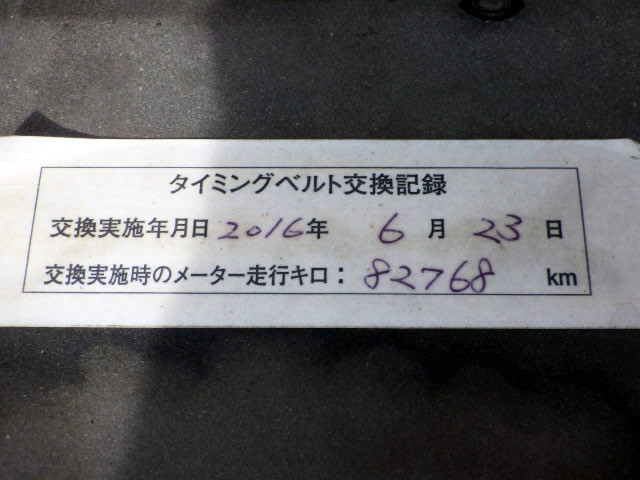 タイミングベルト交換記録
交換実施年月日 2016年 6月 23日
交換実施時のメーター走行キロ： 82768 km